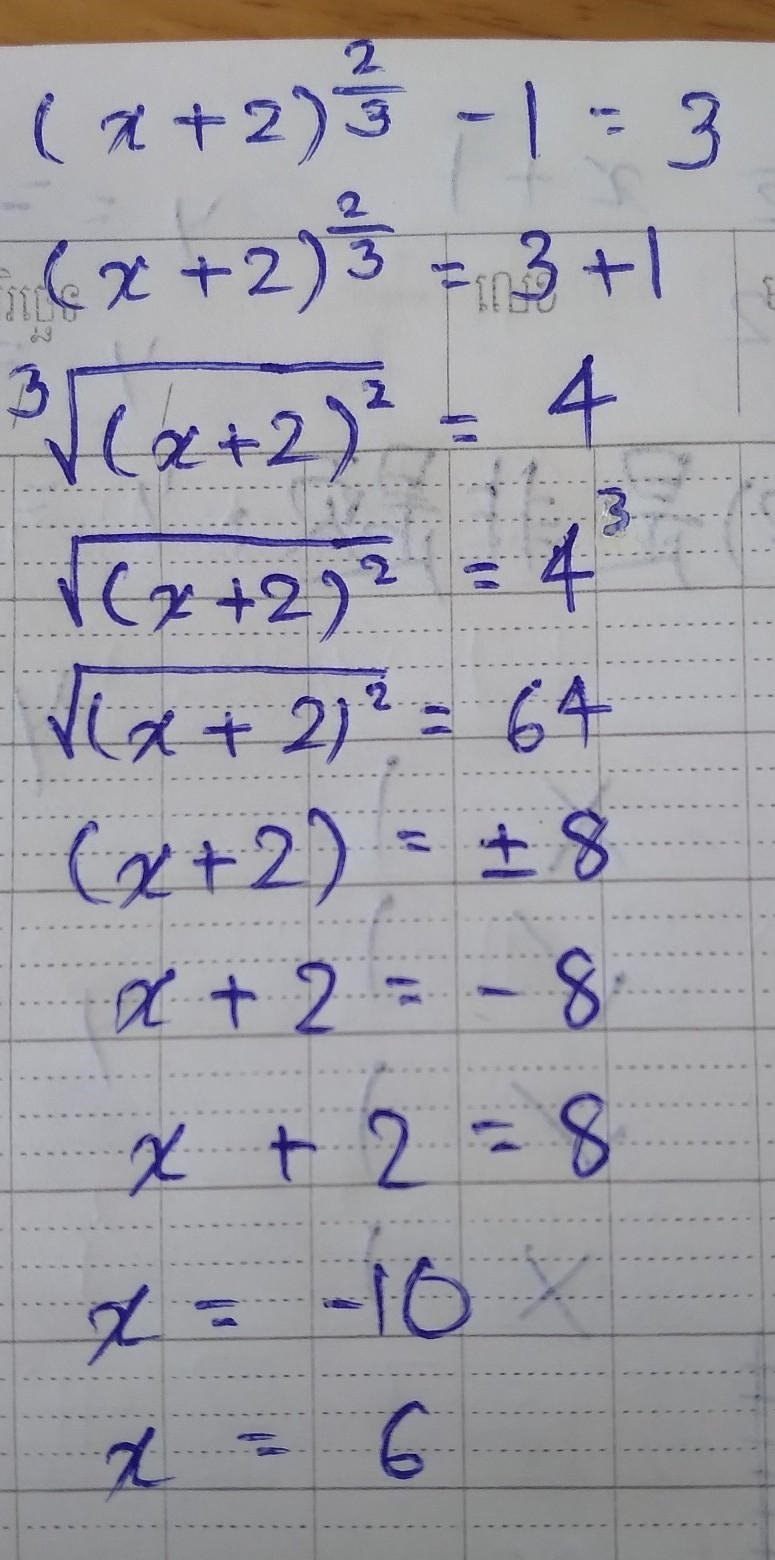 (x+2)^{2/3} - 1 = 3
(x+2)^{2/3} = 3+1
រិច្ឆេទ លេខ
∛((x+2)²) = 4
√((x+2)²) = 4³
√((x+2)²) = 64
(x+2) = ±8
x + 2 = -8
x + 2 = 8
x = -10
x = 6